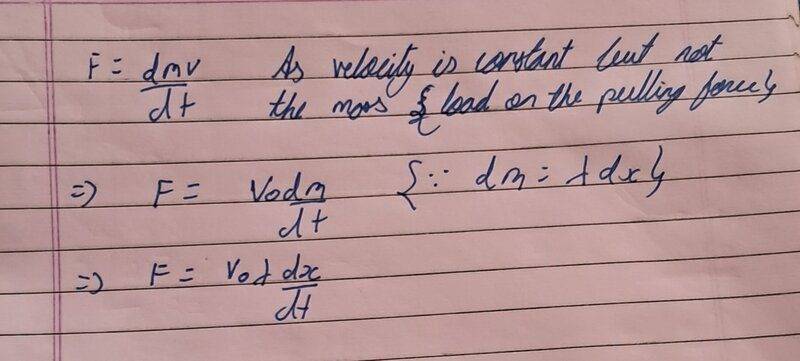 F = dmv/dt As velocity is constant but not
the mass { load on the pulling force}
=> F = V₀dm/dt {∵ dm = λdx}
=> F = V₀λ dx/dt